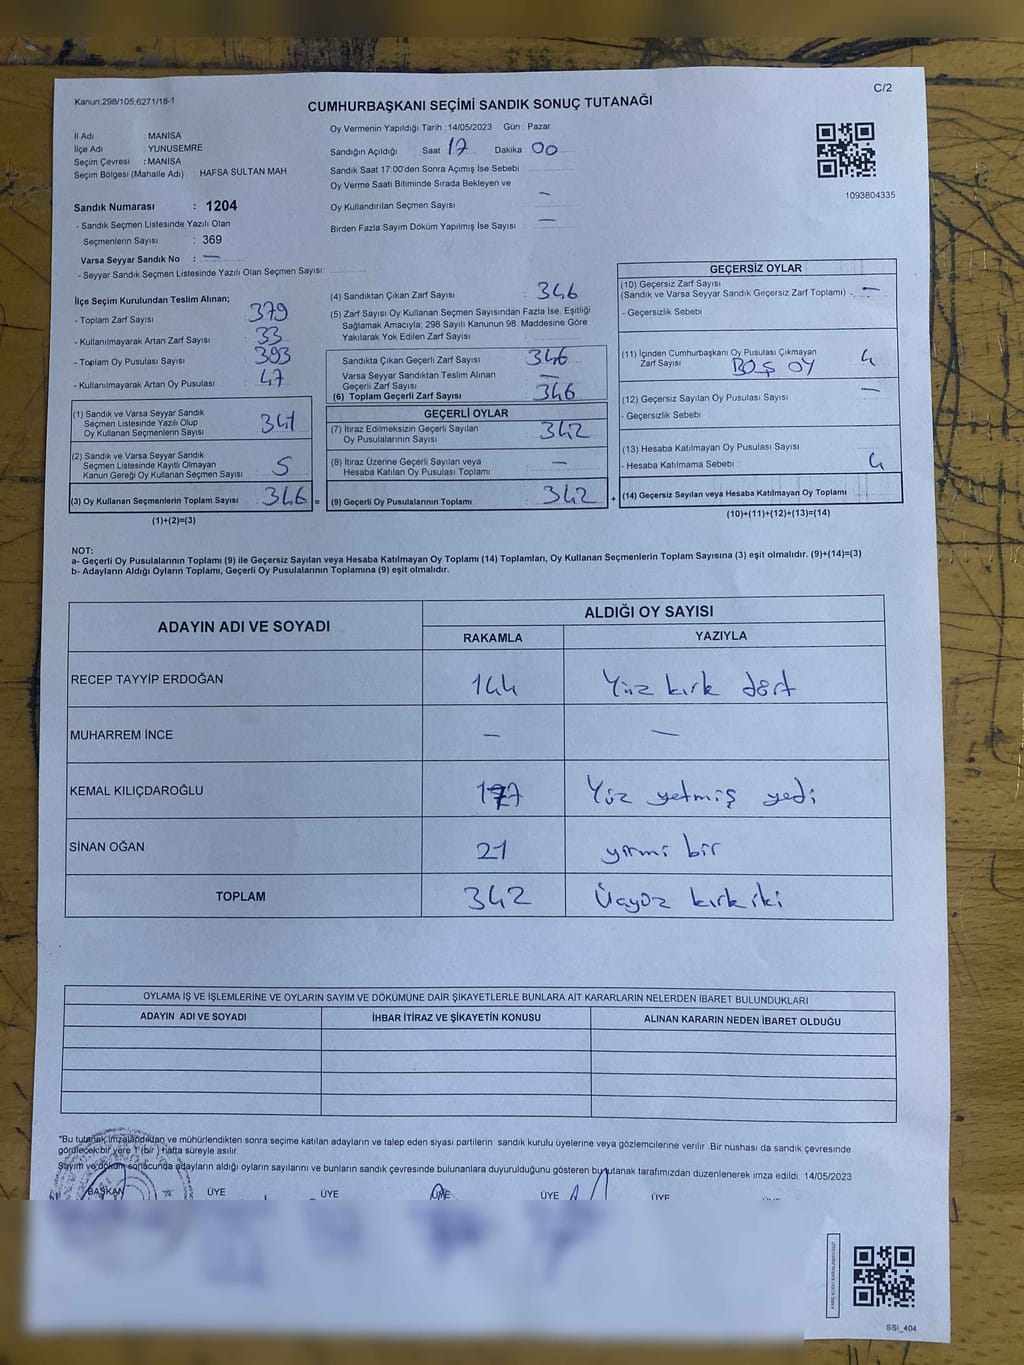 Kanun:298/105;6271/16-1
C/2
CUMHURBAŞKANI SEÇİMİ SANDIK SONUÇ TUTANAĞI
İl Adı : MANİSA
İlçe Adı : YUNUSEMRE
Seçim Çevresi : MANİSA
Seçim Bölgesi (Mahalle Adı) HAFSA SULTAN MAH
Sandık Numarası : 1204
- Sandık Seçmen Listesinde Yazılı Olan
Seçmenlerin Sayısı : 369
Varsa Seyyar Sandık No : —
- Seyyar Sandık Seçmen Listesinde Yazılı Olan Seçmen Sayısı:
Oy Vermenin Yapıldığı Tarih : 14/05/2023 Gün : Pazar
Sandığın Açıldığı Saat 17 Dakika 00
Sandık Saat 17:00'den Sonra Açımış İse Sebebi
Oy Verme Saati Bitiminde Sırada Bekleyen ve
Oy Kullandırılan Seçmen Sayısı : —
Birden Fazla Sayım Döküm Yapılmış İse Sayısı : —
1093804335
İlçe Seçim Kurulundan Teslim Alınan;
- Toplam Zarf Sayısı 379
- Kullanılmayarak Artan Zarf Sayısı 33
- Toplam Oy Pusulası Sayısı 393
- Kullanılmayarak Artan Oy Pusulası 47
(1) Sandık ve Varsa Seyyar Sandık
Seçmen Listesinde Yazılı Olup
Oy Kullanan Seçmenlerin Sayısı 341
(2) Sandık ve Varsa Seyyar Sandık
Seçmen Listesinde Kayıtlı Olmayan
Kanun Gereği Oy Kullanan Seçmen Sayısı 5
(3) Oy Kullanan Seçmenlerin Toplam Sayısı 346 =
(1)+(2)=(3)
(4) Sandıktan Çıkan Zarf Sayısı 346
(5) Zarf Sayısı Oy Kullanan Seçmen Sayısından Fazla İse, Eşitliği
Sağlamak Amacıyla; 298 Sayılı Kanunun 98. Maddesine Göre
Yakılarak Yok Edilen Zarf Sayısı
Sandıkta Çıkan Geçerli Zarf Sayısı 346
Varsa Seyyar Sandıktan Teslim Alınan
Geçerli Zarf Sayısı —
(6) Toplam Geçerli Zarf Sayısı 346
GEÇERLİ OYLAR
(7) İtiraz Edilmeksizin Geçerli Sayılan
Oy Pusulalarının Sayısı 342
(8) İtiraz Üzerine Geçerli Sayılan veya
Hesaba Katılan Oy Pusulası Toplamı —
(9) Geçerli Oy Pusulalarının Toplamı 342 +
GEÇERSİZ OYLAR
(10) Geçersiz Zarf Sayısı
(Sandık ve Varsa Seyyar Sandık Geçersiz Zarf Toplamı) —
- Geçersizlik Sebebi
(11) İçinden Cumhurbaşkanı Oy Pusulası Çıkmayan
Zarf Sayısı BOŞ OY 4
(12) Geçersiz Sayılan Oy Pusulası Sayısı —
- Geçersizlik Sebebi
(13) Hesaba Katılmayan Oy Pusulası Sayısı
- Hesaba Katılmama Sebebi 4
(14) Geçersiz Sayılan veya Hesaba Katılmayan Oy Toplamı
(10)+(11)+(12)+(13)=(14)
NOT:
a- Geçerli Oy Pusulalarının Toplamı (9) ile Geçersiz Sayılan veya Hesaba Katılmayan Oy Toplamı (14) Toplamları, Oy Kullanan Seçmenlerin Toplam Sayısına (3) eşit olmalıdır. (9)+(14)=(3)
b- Adayların Aldığı Oyların Toplamı, Geçerli Oy Pusulalarının Toplamına (9) eşit olmalıdır.
ADAYIN ADI VE SOYADI ALDIĞI OY SAYISI
RAKAMLA YAZIYLA
RECEP TAYYİP ERDOĞAN 144 Yüz kırk dört
MUHARREM İNCE — —
KEMAL KILIÇDAROĞLU 177 Yüz yetmiş yedi
SİNAN OĞAN 21 yirmi bir
TOPLAM 342 Üçyüz kırk iki
OYLAMA İŞ VE İŞLEMLERİNE VE OYLARIN SAYIM VE DÖKÜMÜNE DAİR ŞİKAYETLERLE BUNLARA AİT KARARLARIN NELERDEN İBARET BULUNDUKLARI
ADAYIN ADI VE SOYADI İHBAR İTİRAZ VE ŞİKAYETİN KONUSU ALINAN KARARIN NEDEN İBARET OLDUĞU
*Bu tutanak imzalandıktan ve mühürlendikten sonra seçime katılan adayların ve talep eden siyasi partilerin sandık kurulu üyelerine veya gözlemcilerine verilir .Bir nushası da sandık çevresinde
görülecek bir yere 1 (bir ) hafta süreyle asılır.
Sayım ve döküm sonucunda adayların aldığı oyların sayılarını ve bunların sandık çevresinde bulunanlara duyurulduğunu gösteren bu tutanak tarafımızdan düzenlenerek imza edildi. 14/05/2023
BAŞKAN ÜYE ÜYE ÜYE ÜYE ÜYE ÜYE
SSI_404